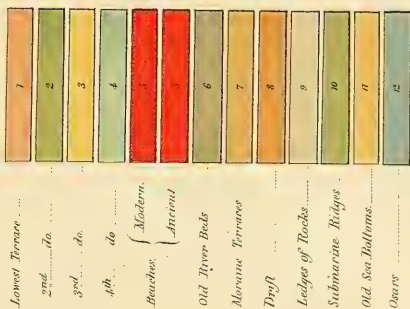 Lowest Terrace ... 1
2nd ... do. ..... 2
3rd ... do. 3
4th ... do ....... 4
Beaches. { Modern. 5
{ Ancient 5
Old River Beds 6
Moraine Terraces 7
Drift ... .... 8
Ledges of Rocks ........ 9
Submarine Ridges . 10
Old Sea Bottoms ........ 11
Osars ........ 12